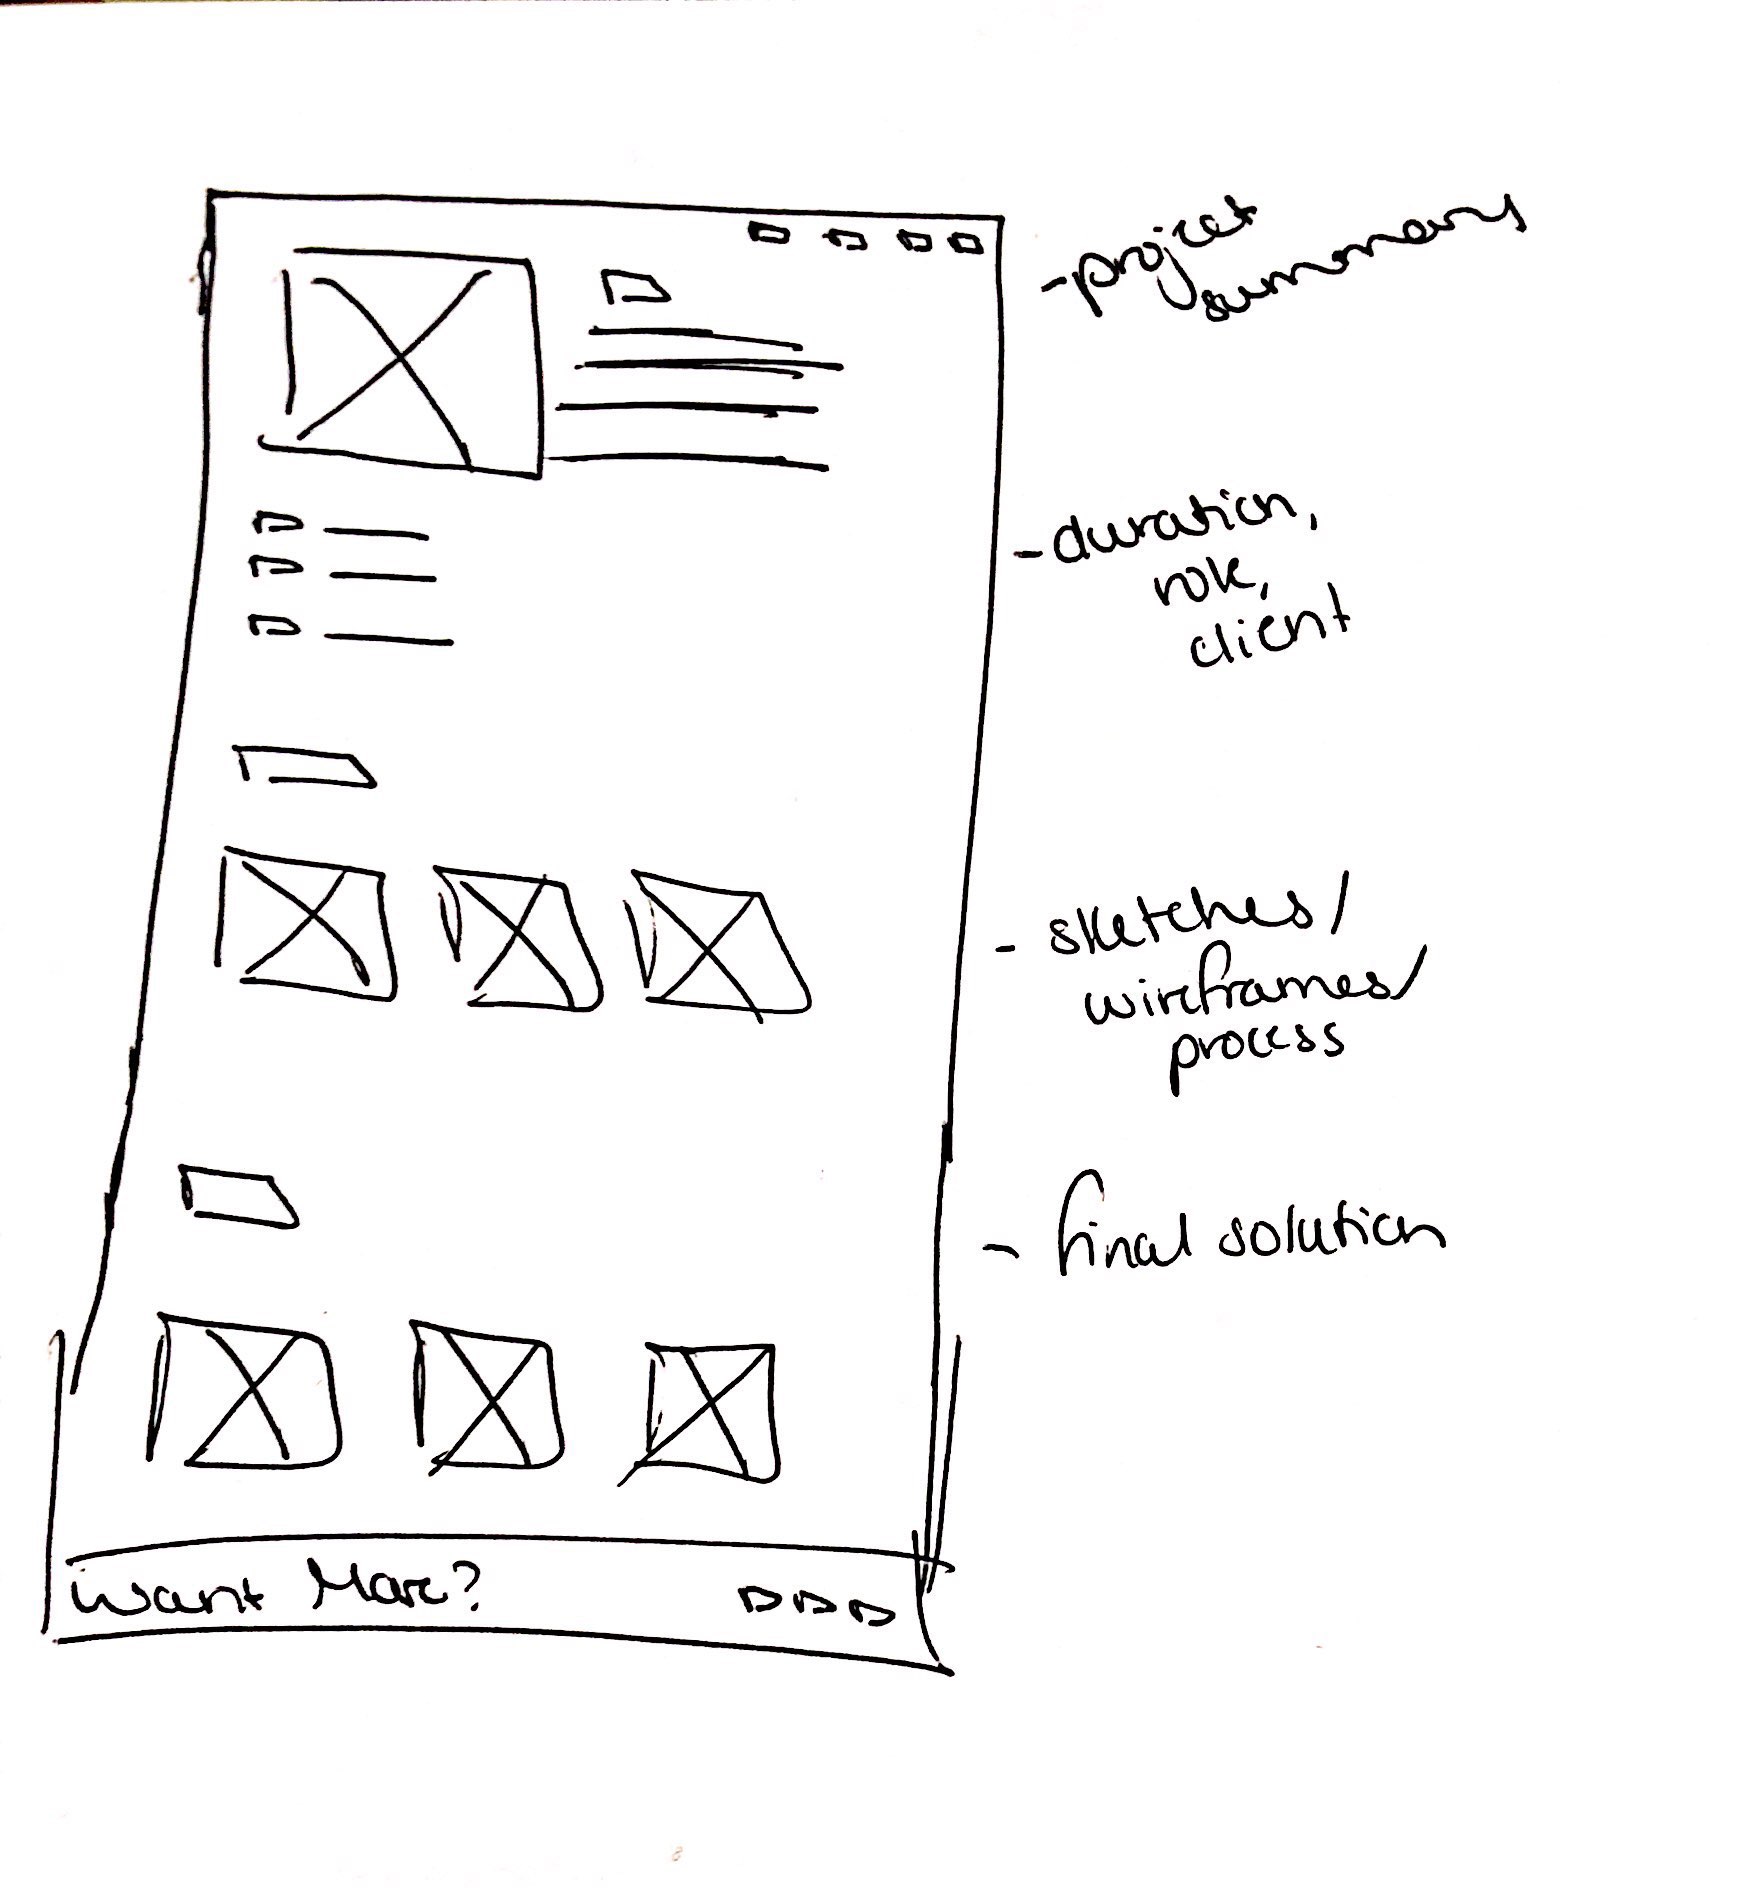 -project
summary
-duration,
role,
client
- sketches/
wireframes/
process
- final solution
Want More?